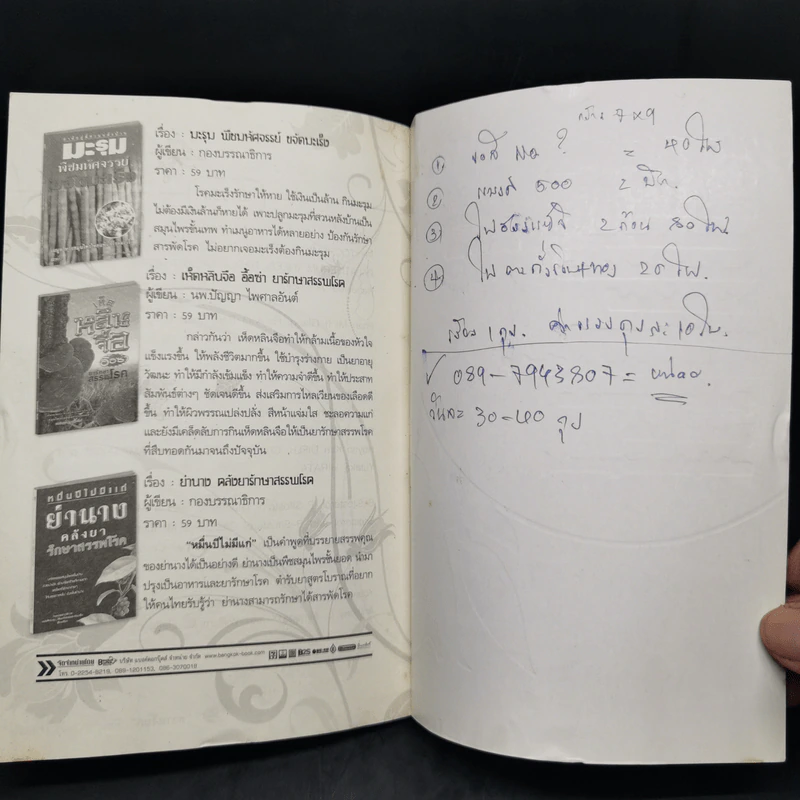 มะรุม
พืชมหัศจรรย์
เรื่อง : มะรุม พืชมหัศจรรย์ ขจัดมะเร็ง
ผู้เขียน : กองบรรณาธิการ
ราคา : 59 บาท
โรคมะเร็งรักษาให้หาย ใช้เงินเป็นล้าน กินมะรุม
ไม่ต้องมีเงินล้านก็หายได้ เพาะปลูกมะรุมที่สวนหลังบ้านเป็น
สมุนไพรชั้นเทพ ทำเมนูอาหารได้หลายอย่าง ป้องกันรักษา
สารพัดโรค ไม่อยากเจอมะเร็งต้องกินมะรุม
เรื่อง : เห็ดหลินจือ อื้อซ่า ยารักษาสรรพโรค
ผู้เขียน : นพ.ปัญญา ไพศาลอันต์
ราคา : 59 บาท
กล่าวกันว่า เห็ดหลินจือทำให้กล้ามเนื้อของหัวใจ
แข็งแรงขึ้น ให้พลังชีวิตมากขึ้น ใช้บำรุงร่างกาย เป็นยาอายุ
วัฒนะ ทำให้มีกำลังเข้มแข็ง ทำให้ความจำดีขึ้น ทำให้ประสาท
สัมผัสต่างๆ ชัดเจนดีขึ้น ส่งเสริมการไหลเวียนของเลือดดี
ขึ้น ทำให้ผิวพรรณเปล่งปลั่ง สีหน้าแจ่มใส ชะลอความแก่
และยังมีเคล็ดลับการกินเห็ดหลินจือให้เป็นยารักษาสรรพโรค
ที่สืบทอดกันมาจนถึงปัจจุบัน
หมื่นปีไม่มีแก่
ย่านาง
คลังยา
รักษาสรรพโรค
เรื่อง : ย่านาง คลังยารักษาสรรพโรค
ผู้เขียน : กองบรรณาธิการ
ราคา : 59 บาท
"หมื่นปีไม่มีแก่" เป็นคำพูดที่บรรยายสรรพคุณ
ของย่านางได้เป็นอย่างดี ย่านางเป็นพืชสมุนไพรชั้นยอด นำมา
ปรุงเป็นอาหารและยารักษาโรค ตำรับยาสูตรโบราณที่อยาก
ให้คนไทยรับรู้ว่า ย่านางสามารถรักษาได้สารพัดโรค
จัดจำหน่ายโดย บริษัท บางกอกบุ๊คส์ จำหน่าย จำกัด www.bangkok-book.com
โทร 0-2254-8219, 089-1201153, 086-3070018
7x9
① ? = 40 ใบ
② 500 2
③ 2 ก้อน 80 ใบ
④ ใบ 20 ใบ.
1 ถุง. ถุงละ 10 ใบ.
✓ 089-7943807 =
วันละ 30-40 ถุง